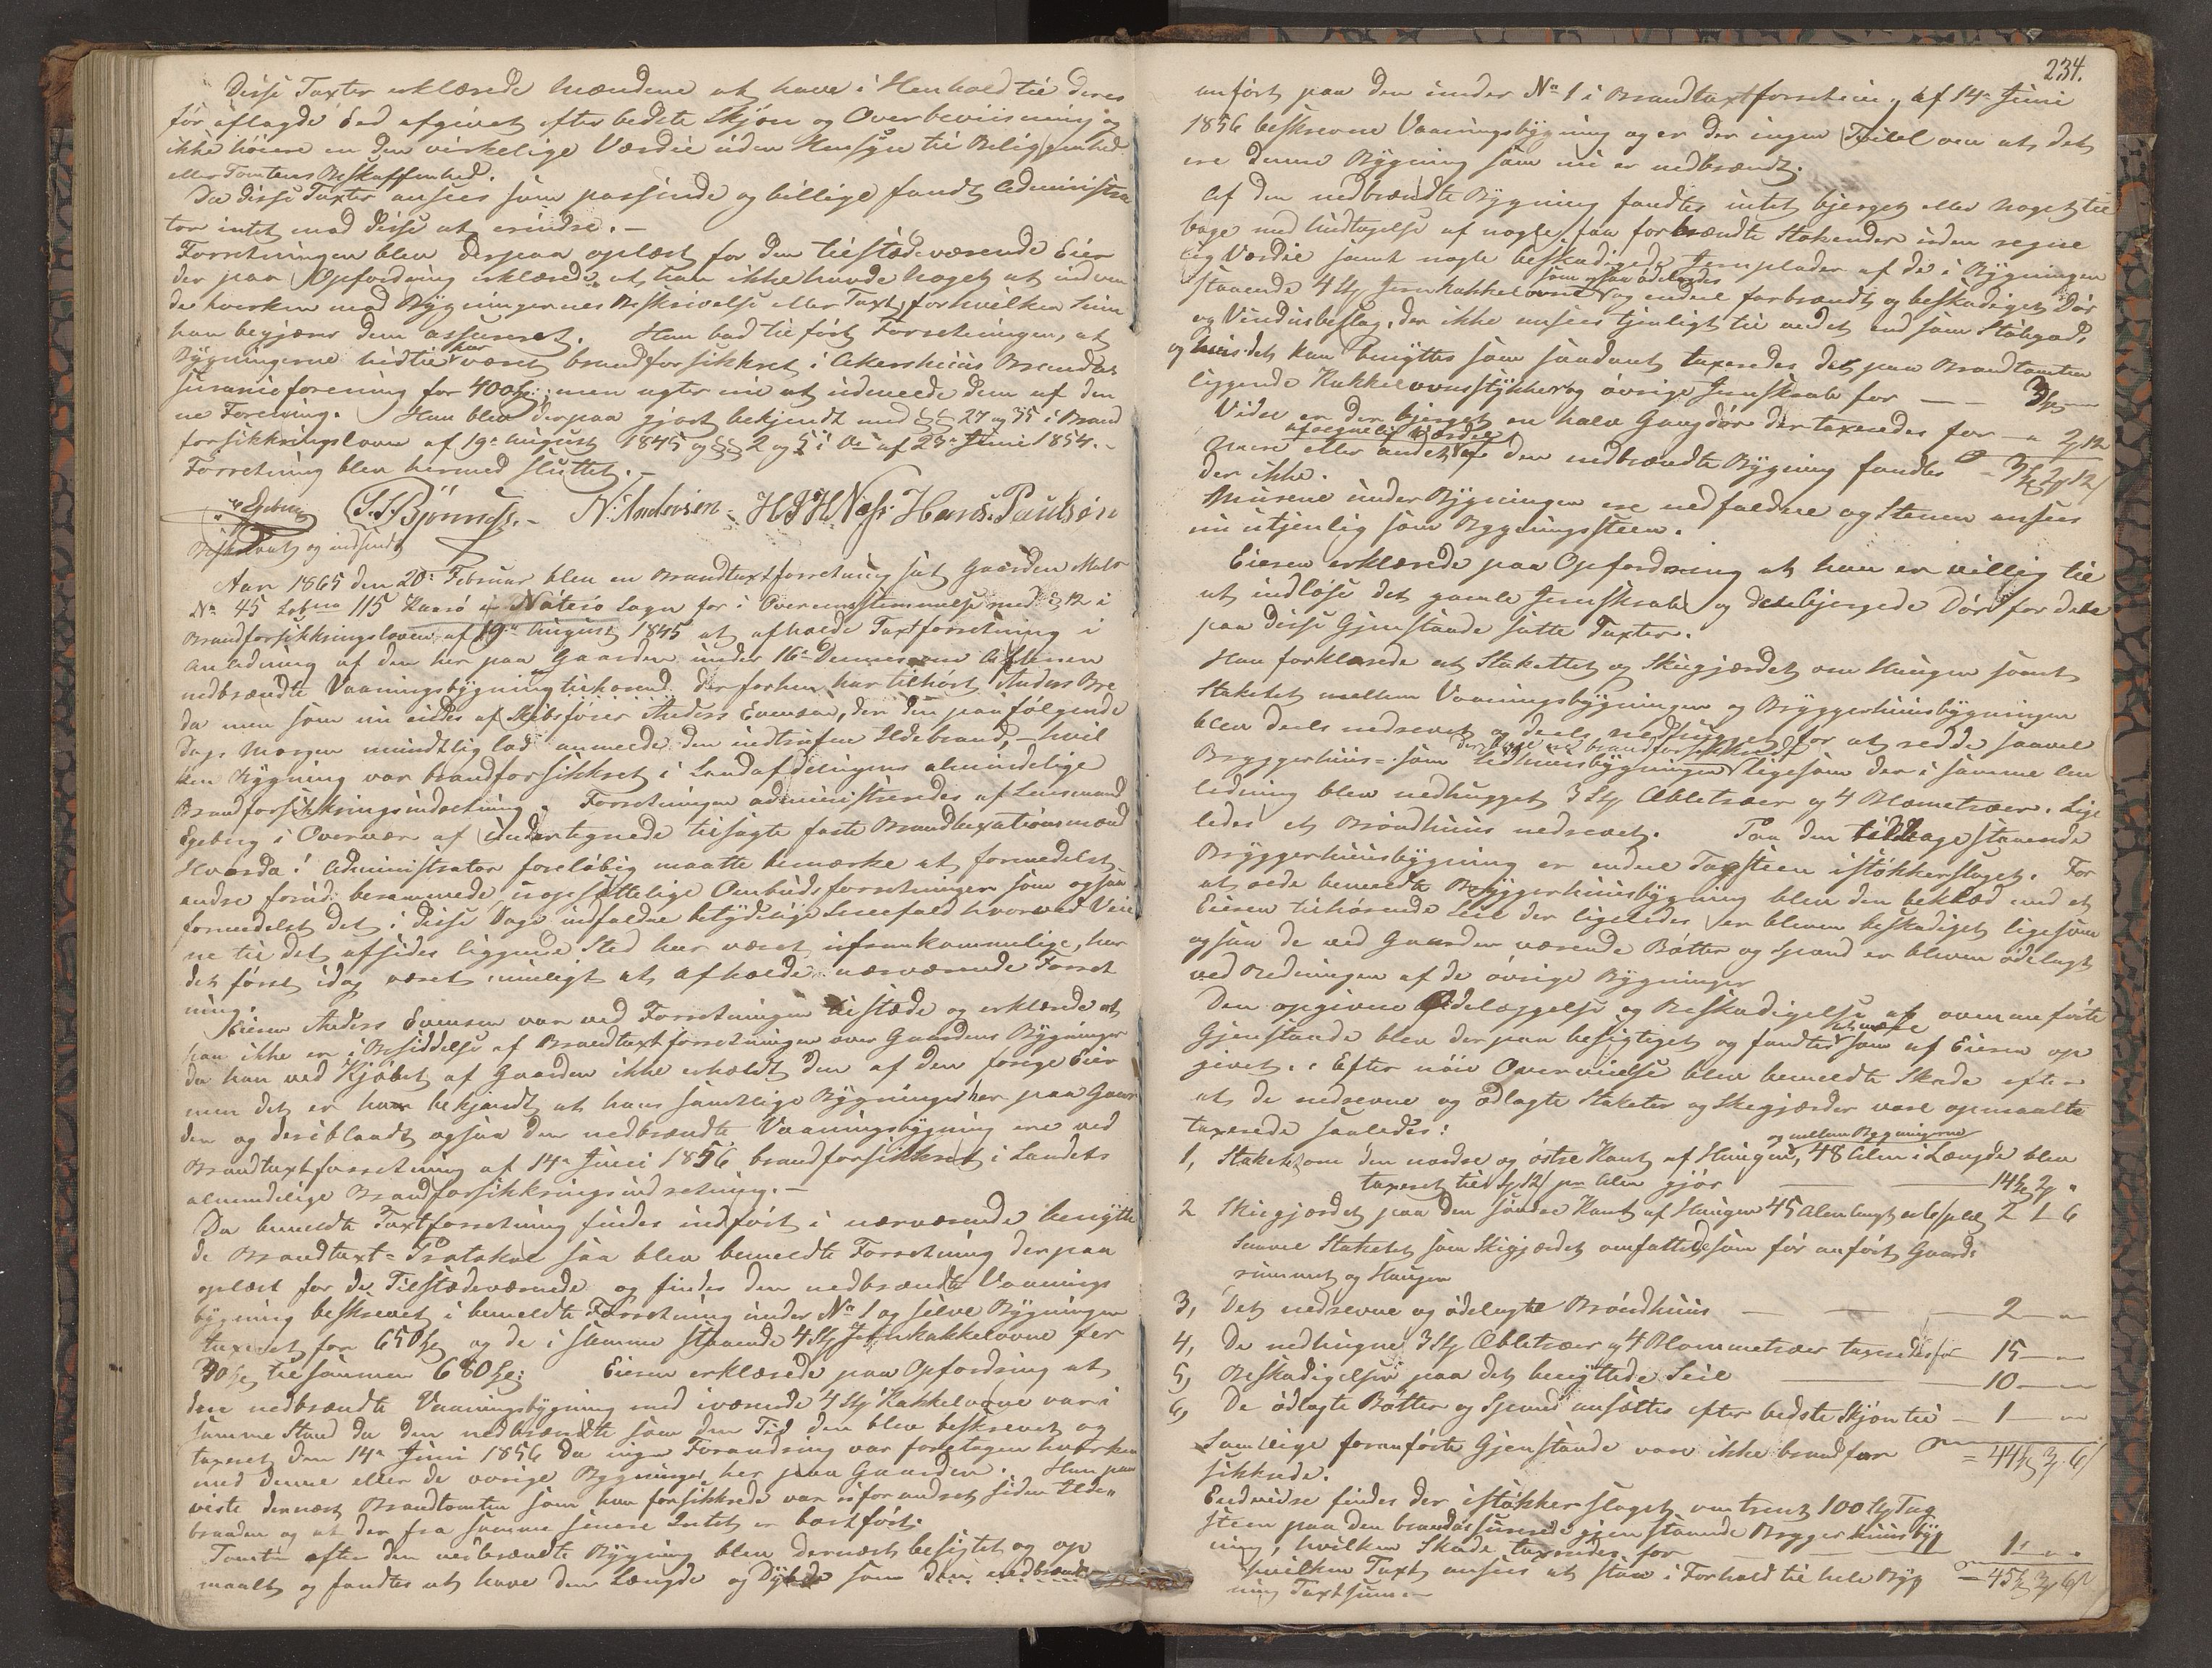 Disse Taxter erklærede Mændene at have i Henhold til deres
før aflagde Eed afgivet efter bedste Skjøn og Overbeviisning og
ikke høiere en den virkelige Værdie uden Hensyn til Beliggenhed
eller Tomtens Beskaffenhed.
Da disse Taxter ansees som passende og billige fandt Administra
tor intet mod disse at erindre. –
Forretningen blev derpaa oplæst for den tilstædeværende Eier
der paa Opfordring erklærede at han ikke havde Noget at indven
de hverken mod Bygningernes Beskrivelse eller Taxt, for hvilken Sum
han begjærer dem assureret. Han bad tilført Forretningen, at
Bygningerne hidtil har været brandforsikkret i Akershuus Brandas
suranceforening for 400 men agter nu at udmelde dem af den
ne Forening. Han blev derpaa gjort bekjendt med §§ 27 og 35 i Brand
forsikkringsloven af 19de August 1845 og §§ 2 og 5 i Do af 23de Juni 1854. –
Forretning blev hermed sluttet. –
Egeberg S. S. Bjørness. – N. Andersen – H J H Næss. Hans Paulsøn
Beskrevet og indsendt
Aar 1865 den 20de Februar blev en Brandtaxtforretning sat Gaarden Matr
No 45 Løbno 115 i Nøterø Sogn for i Overensstemmelse med § 12 i
Brandforsikkringsloven af 19de August 1845 at afholde Taxtforretning i
Anledning af den her paa Gaarden under 16de Dennes om Aftenen
nedbrændte Vaaningsbygning tilhørend der forhen har tilhørt Anders Bre
da men som nu eies af Skibsfører Anders Evensen, der den paafølgende
Dags Morgen mundtlig lod anmelde den indtrufne Ildebrand, – hvil
ken Bygning var brandforsikkret i Landafdelingens almindelige
Brandforsikkringsindretning. Forretningen administreredes af Lensmand
Egeberg i Overvær af undertegnede tilsagte faste Brandtaxationsmænd
Hvorda! Administrator foreløbig maatte bemærke at formedelst
andre forud berammede, uopsættelige Ombudsforretninger som ogsaa
formedelst det i disse Dage indfaldne betydelige Sneefald hvorved Veie
ne til det afsides liggende Sted har været ufremkommelige, har
det først idag været muligt at afholde nærværende Forret
ning.
Eieren Anders Evensen var ved Forretningen tilstæde og erklærede at
han ikke er i Besiddelse af Brandtaxtforretningen over Gaardens Bygninger
da han ved Kjøbet af Gaarden ikke erholdt den af den forige Eier
men det er ham bekjendt at hans samtlige Bygninger her paa Gaar
den og deriblandt ogsaa den nedbrændte Vaaningsbygning ere ved
Brandtaxtforretning af 14de Juni 1856 brandforsikkret i Landets
almindelige Brandforsikkringsindretning. –
Da bemeldte Taxtforretning findes indført i nærværende benytte
de Brandtaxt-Protokol saa blev bemeldte Forretning derpaa
oplæst for de Tilstædeværende og findes den nedbrændte Vaanings
bygning beskrevet i bemeldte Forretning under No 1 og selve Bygningen
taxeret for 650 og de i samme staaende 4 Stk Jernkakkelovne for
30 tilsammen 680 Eieren erklærede paa Opfordring at
den nedbrændte Vaaningsbygning med iværende 4 Stk Kakkelovne var i
samme Stand da den nedbrændte som den Tid den blev beskrevet og
taxeret den 14de Juni 1856 da ingen Forandring var foretagen hverken
med denne eller de øvrige Bygninger her paa Gaarden. Han paa
viste dernæst Brandtomten som han forsikkrede var uforandret siden Ilde
branden og at der fra samme senere Intet er bortført.
Tomten efter den nedbrændte Bygning blev dernæst besigtet og op
maalt og fandtes at have den Længde og Dybde som den nedbrændte
234.
anført paa den under No 1 i Brandtaxtforretning af 14de Juni
1856 beskrevne Vaaningsbygning og er der ingen Tvivl om at det
ere denne Bygning som nu er nedbrændt.
Af den nedbrændte Bygning fandtes intet bjerget eller Noget til
bage med Undtagelse af nogle faa forbrændte Stokender uden regne
lig Værdie samt nogle beskadigede Jernplader af de i Bygningen
staaende 4 Stk Jernkakkelovne som ogsaa ødelagdes og endeel forbrændt og beskadiget Dør
og Vinduesbeslag, der ikke ansees tjenligt til andet end som Støbgods,
og hvis det kan benyttes som saadant taxeredes det paa Brandtomten
liggende Kakkelovnsstykker og øvrige Jernskrab for — — 3
Videre er der bjerget en halv Gangdør der taxeredes for — " 2 12
Mere eller andet af regnelig Værdie af den nedbrændte Bygning fandtes – 3 2 12
der ikke.
Murene under Bygningen ere nedfaldne og Stenen ansees
nu utjenlig som Bygningssteen.
Eieren erklærede paa Opfordring at han er villig til
at indløse det gamle Jernskrab og den bjergede Dør for dete
paa disse Gjenstande satte Taxter.
Han forklarede at Stakettet og Skigjærdet om Haugen samt
Staketet mellem Vaaningsbygningen og Bryggerhuusbygningen
blev deels nedrevet og deels nedhugget for at redde saavel
Bryggerhuus- som Udhuusbygningen der begge ere brandforsikkrede ligesom der i samme An
ledning blev nedhugget 3 Stk Æbletræer og 4 Blommetræer. Lige
ledes et Brøndhuus nedrevet. Paa den tilbagestaaende
Bryggerhuusbygning er endeel Tagsteen istøkkerslaget. For
at redde bemeldte Bryggerhuusbygning blev den beklæd med et
Eieren tilhørende Seil der ligeledes er bleven beskadiget ligesom
ogsaa de ved Gaarden værende Bøtter og Spand er bleven ødelagt
ved Redningen af de øvrige Bygninger
Den opgivne Ødelæggelse og Beskadigelse af ovenanførte
Gjenstande blev derpaa besigtiget og fandtes at være som af Eieren op
givet. Efter nøie Overveielse blev bemeldte Skade efter
at de nedrevne og ødlagte Staketer og Skigjærder vare opmaalte
taxerede saaledes:
1, Staketet om den nordre og østre Kant af Haugen og mellem Bygningerne, 48 Alen i Længde blev
taxeret til pr Alen gjør — 14 2 "
2 Skigjærdet paa den søndre Kant af Haugen 45 Alen langt 2 1 6
Saavel Staketet som Skigjærdet omfattede som før anført Gaards
rummet og Haugen
3, Det nedrevne og ødelagte Brøndhuus — — — 2 — "
4, De nedhugne 3 Stk Æbletræer og 4 Blommetræer taxeredes for 15 — "
5, Beskadigelsen paa det benyttede Seil — 10 — "
6, De ødlagte Bøtter og Spand ansættes efter bedste Skjøn til — 1 — "
Samtlige foranførte Gjenstande vare ikke brandfor = 44 3 6
sikkrede.
Endvidre findes der istøkkerslaget omtrent 100 Stk Tag
steen paa den brandassurerede gjenstaaende Bryggerhuusbyg
ning, hvilken Skade taxeredes for — 1 " "
hvilken Taxt ansees at staa i Forhold til hele Byg = 45 3 6
ning Taxtsum. –